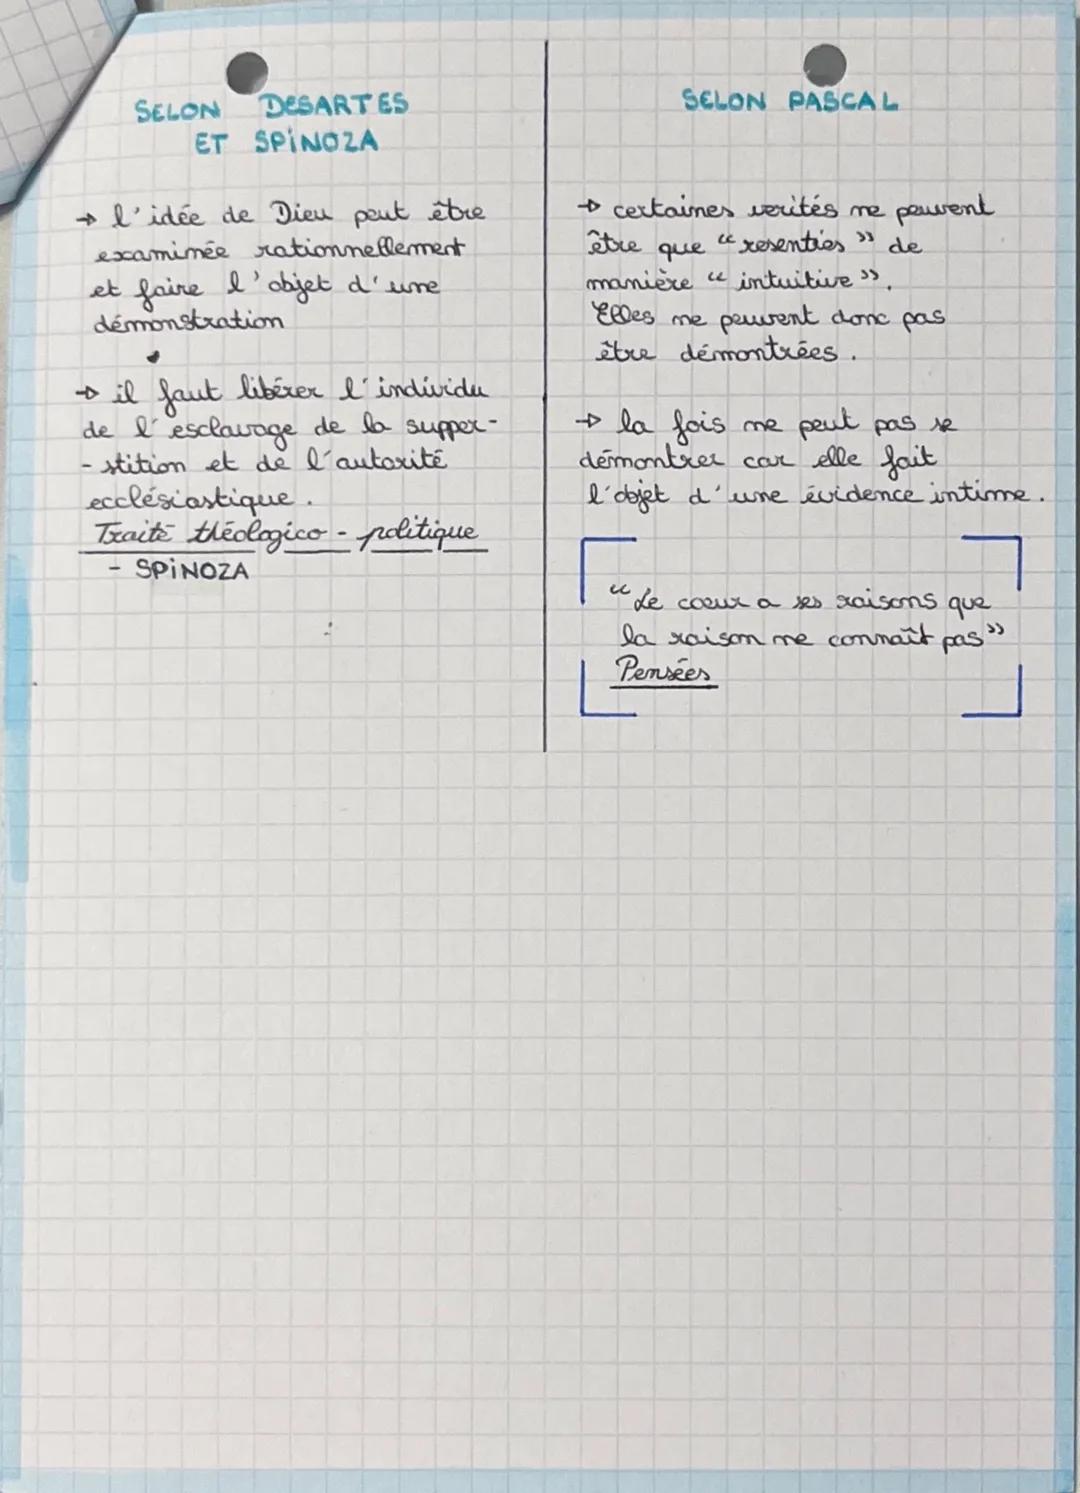 SELON DESARTES
ET SPINOZA
→ l'idée de Dieu peut être
examinée rationnellement
et faire l'objet d'une
démonstration
→ il faut libérer l'individu
de l'esclavage de la supper-
- stition et de l'autorité
ecclésiastique.
Traité théologico - politique
- SPINOZA
SELON PASCAL
→ certaines verités ne peuvent
être que “resenties” de
manière “intuitive”.
Elles ne peuvent donc pas
être démontrées.
→ la fois ne peut pas se
démontrer car elle fait
l'objet d'une évidence intime.
“Le coeur a ses raisons que
la raison ne connaît pas”
Pensées